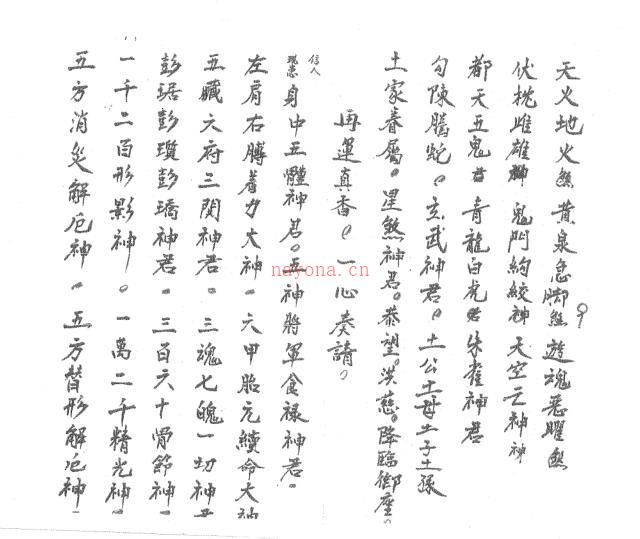 天火地火煞黃泉急脚煞遊魂惡曜煞
伏枕雌雄神鬼門絢絞神天空亡神神
都天五鬼君青龍白虎君朱雀神君
勾陳騰蛇。玄武神君。土公土母土子土孫
土家眷屬。星煞神君。恭望。洪慈。降臨御座。
再運真香。一心奏請。
信人
現患身中五體神君。五神將軍食祿神君。
左肩右膊着力大神。六甲胎元續命大神
五臟六府三関神君。三魂七魄一切神君
彭琚彭瓆彭璚神君。三百六十骨節神。
一千二百形影神。一萬二千精光神。
五方消災解厄神。五方替形解厄神。
nayona.cn